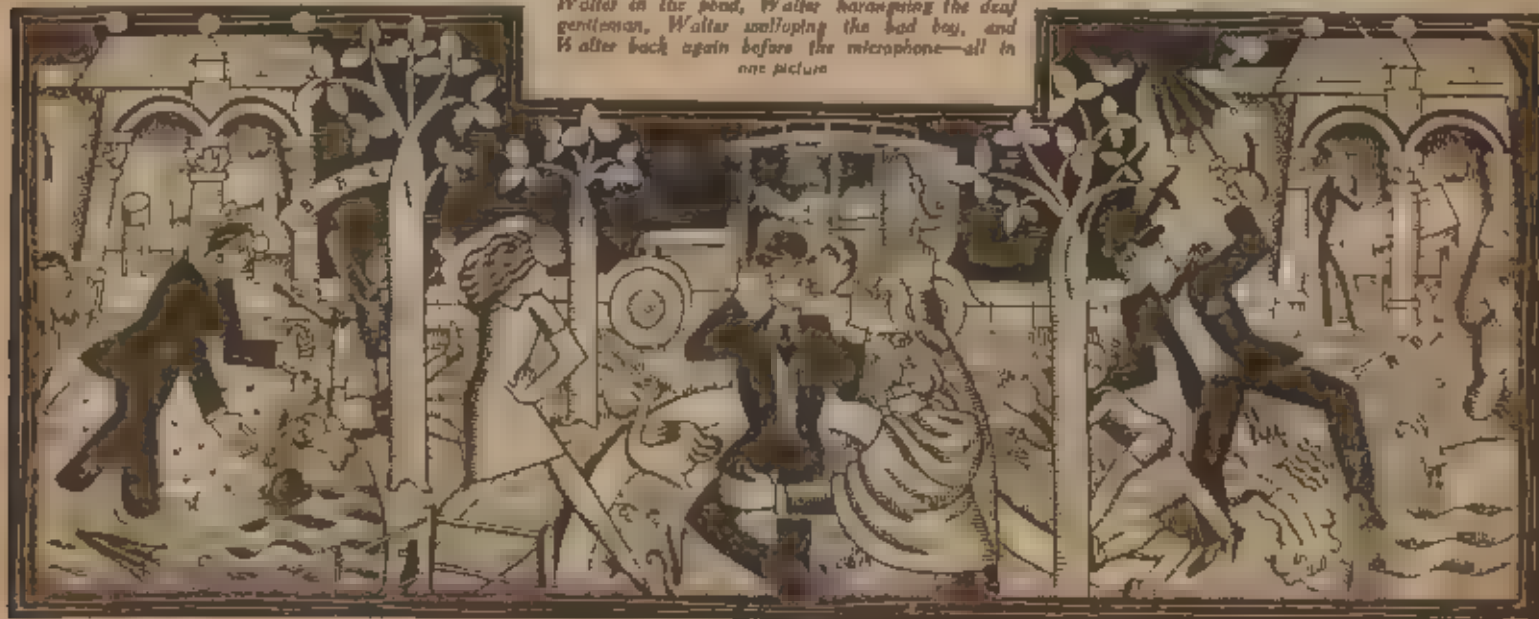 Walter in the pond, Walter haranguing the deaf
gentleman, Walter walloping the bad boy, and
Walter back again before the microphone—all in
one picture